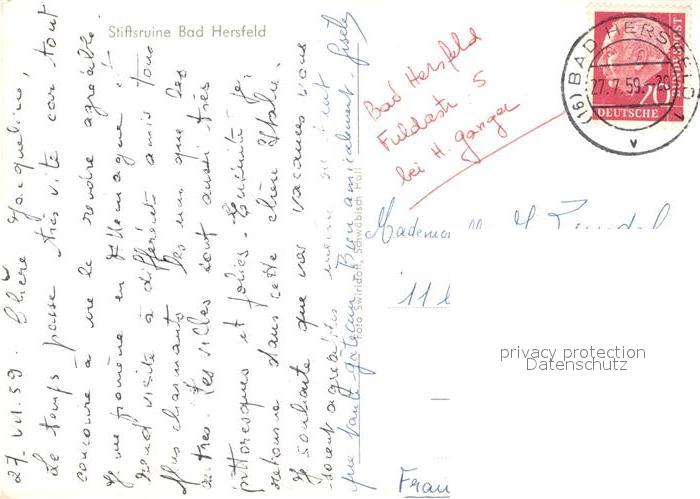 Stiftsruine Bad Hersfeld
27. VII. 59. Chère Jacqueline,
Le temps passe très vite car tout
concourt à me le rendre agréable.
Je me promène en Allemagne et
rend visite à différents amis tous
plus charmants les uns que les
autres. Les villes sont aussi très
pittoresques et jolies. Ensuite je
retourne dans cette chère Italie.
Je souhaite que vos vacances vous
soient agréables même si
que santé gâteau. Bien amicalement. Gisèle
Foto Swiridoff, Schwäbisch Hall
Bad Hersfeld
Fuldastr. 5
bei H. Ganger
(16) BAD HERSFELD 1
27.7.59.-20
v
20
DEUTSCHE
POST
11
Fran
privacy protection
Datenschutz